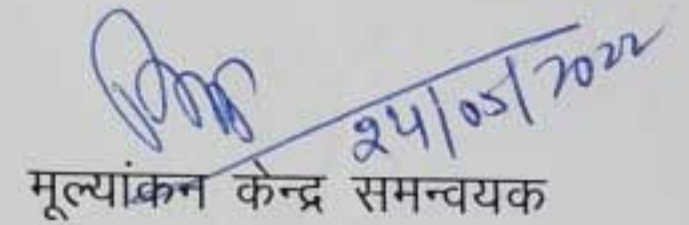 24/05/2022
मूल्यांकन केन्द्र समन्वयक